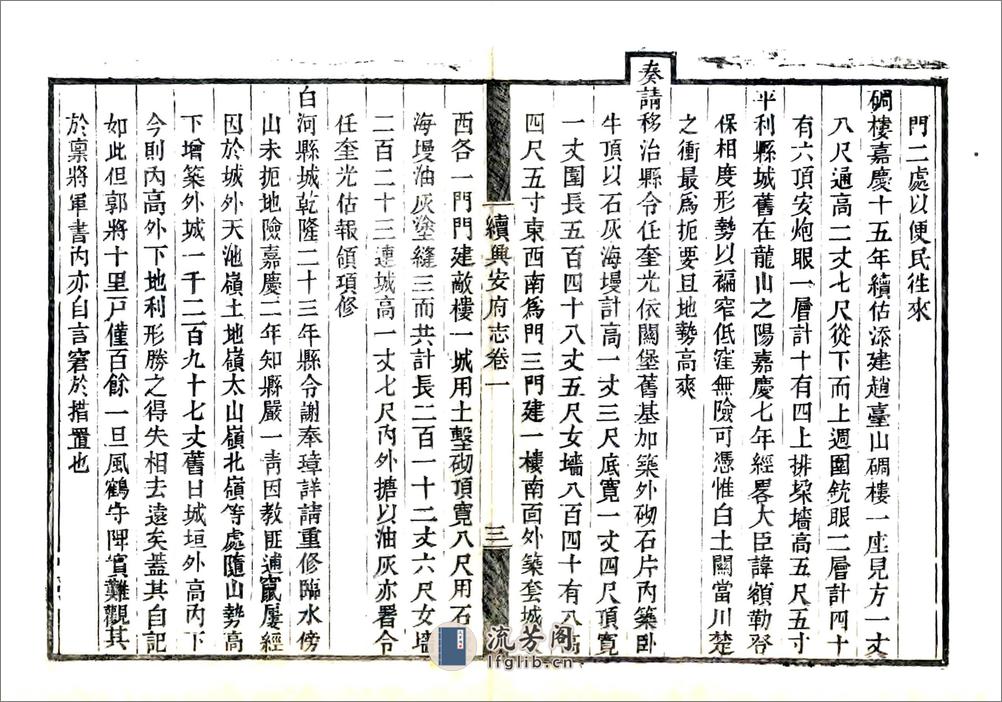 門二處以便民徃來
碉樓嘉慶十五年續估添建趙臺山碉樓一座見方一丈
八尺通高二丈七尺從下而上週圍銃眼二層計四十
有六頂安炮眼一層計十有四上排垜墻高五尺五寸
平利縣城舊在龍山之陽嘉慶七年經畧大臣諱額勒登
保相度形勢以褊窄低窪無險可憑惟白土關當川楚
之衝最爲扼要且地勢高爽
奏請移治縣令任奎光依關堡舊基加築外砌石片内築卧
牛頂以石灰海墁計高一丈三尺底寬一丈四尺頂寬
一丈圍長五百四十八丈五尺女墻八百四十有八高
四尺五寸東西南爲門三門建一樓南面外築套城
續興安府志卷一
三
西各一門門建敵樓一城用土墼砌頂寬八尺用石
海墁油灰塗縫三面共計長二百一十二丈六尺女墻
二百二十三連城高一丈七尺内外搪以油灰亦署令
任奎光估報領項修
白河縣城乾隆二十三年縣令謝奉璋詳請重修臨水傍
山未扼地險嘉慶二年知縣嚴一青因教匪逋竄屢經
因於城外天池嶺土地嶺太山嶺北嶺等處隨山勢高
下增築外城一千二百九十七丈舊日城垣外高内下
今則内高外下地利形勝之得失相去遠矣蓋其自記
如此但郭將十里戸僅百餘一旦風鶴守陴實難觀其
於稟將軍書内亦自言窘於措置也
流芳阁
lfglib.cn